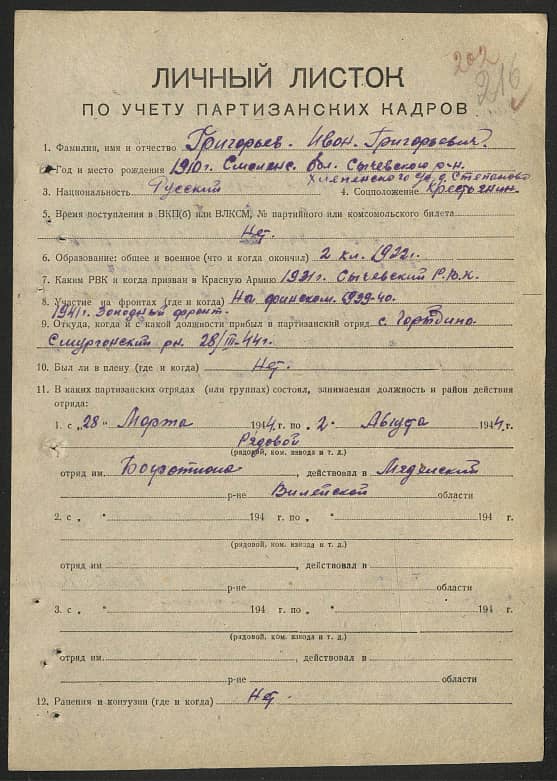 202
216
ЛИЧНЫЙ ЛИСТОК
ПО УЧЕТУ ПАРТИЗАНСКИХ КАДРОВ
1. Фамилия, имя и отчество Григорьев. Иван. Григорьевич.
2. Год и место рождения 1910 г. Смоленс. обл. Сычевского р-н.
д. Степаново
3. Национальность Русский 4. Соцположение Крестьянин.
5. Время поступления в ВКП(б) или ВЛКСМ, № партийного или комсомольского билета
Нет.
6. Образование: общее и военное (что и когда окончил) 2 кл. 1922 г.
7. Каким РВК и когда призван в Красную Армию 1931 г. Сычевский Р.В.К.
8. Участие на фронтах (где и когда) На финском. 1939-40.
1941 г. Западный фронт.
9. Откуда, когда и с какой должности прибыл в партизанский отряд с.
Смургонский рн. 28/III-44 г.
10. Был ли в плену (где и когда) Нет.
11. В каких партизанских отрядах (или группах) состоял, занимаемая должность и район действия
отряда:
1. с „28" Марта 1944 г. по „2" Августа 1944 г.
Рядовой
(рядовой, ком. взвода и т. д.)
отряд им. , действовал в
р-не Вилейской области
2. с „ " 194 г. по „ " 194 г.
(рядовой, ком. взвода и т. д.)
отряд им. , действовал в
р-не области
3. с „ " 194 г. по „ " 194 г.
(рядовой, ком. взвода и т. д.)
отряд им. , действовал в
р-не области
12. Ранения и контузии (где и когда) Нет.